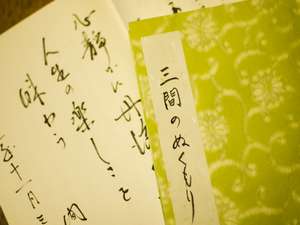 三間のぬくもり
心静かに
人生の楽しさを
味わう
十一月三